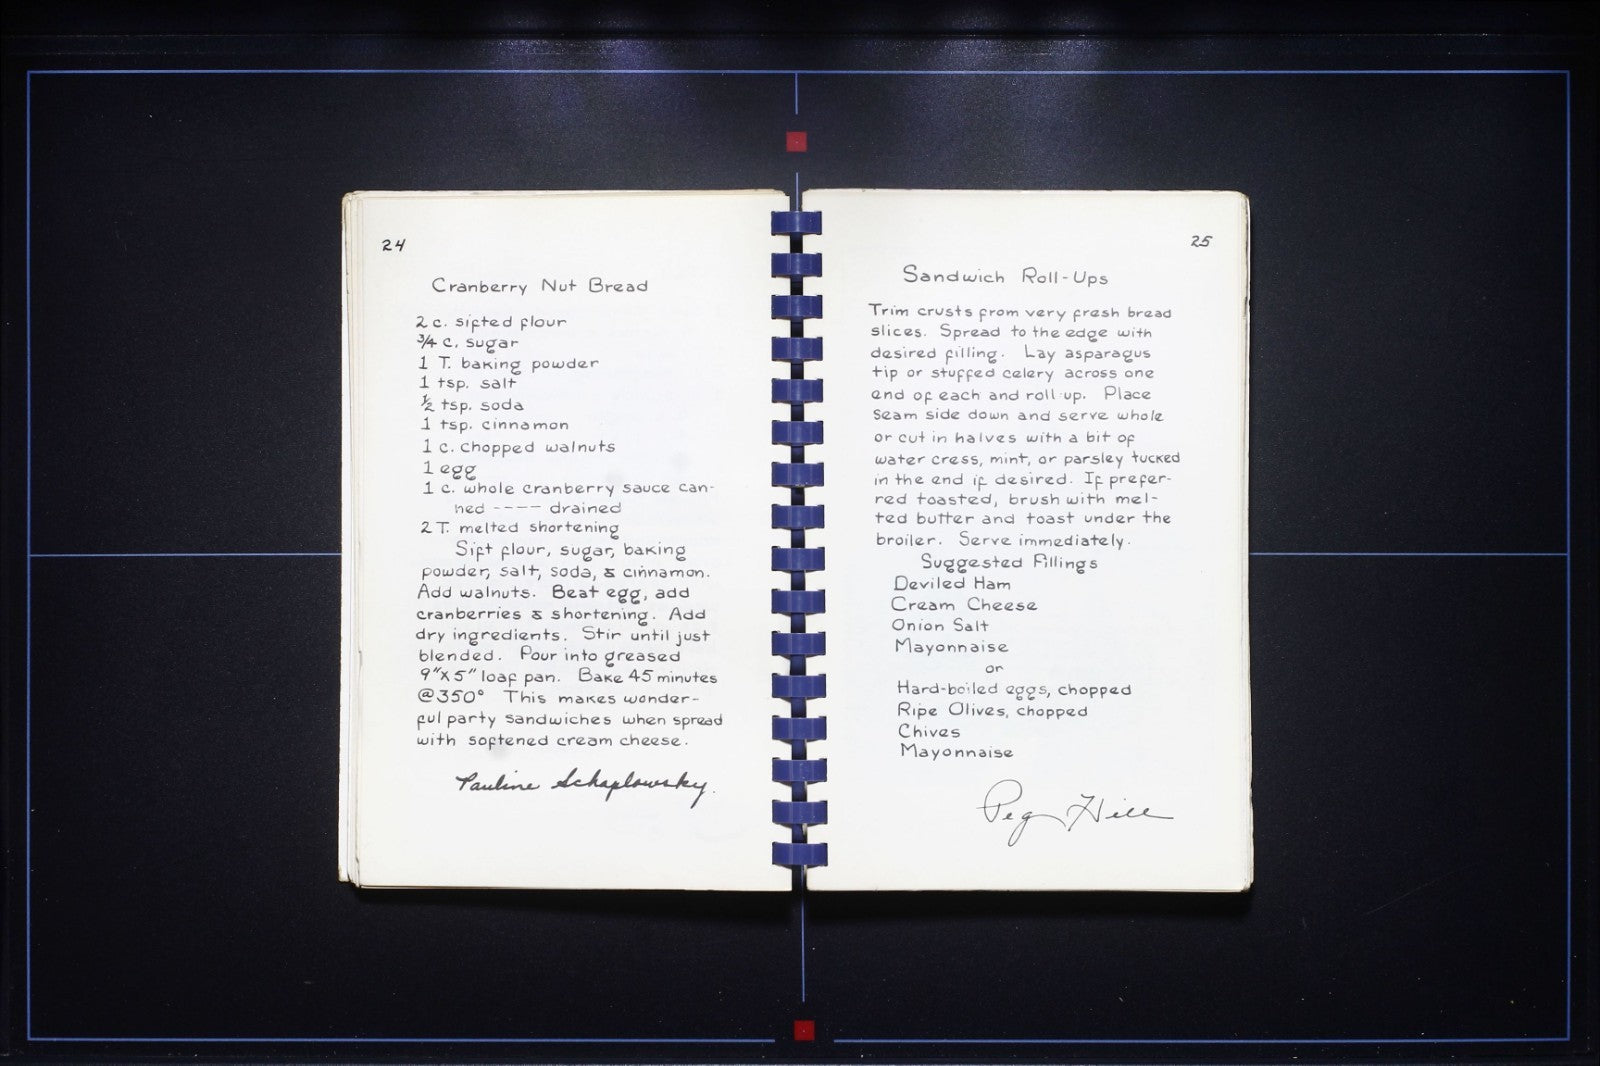 24
Cranberry Nut Bread
2 c. sifted flour
3/4 c. sugar
1 T. baking powder
1 tsp. salt
1/2 tsp. soda
1 tsp. cinnamon
1 c. chopped walnuts
1 egg
1 c. whole cranberry sauce can-
ned ---- drained
2 T. melted shortening
Sift flour, sugar, baking
powder, salt, soda, & cinnamon.
Add walnuts. Beat egg, add
cranberries & shortening. Add
dry ingredients. Stir until just
blended. Pour into greased
9"x5" loaf pan. Bake 45 minutes
@350° This makes wonder-
ful party sandwiches when spread
with softened cream cheese.
Pauline Schaplowsky.
25
Sandwich Roll-Ups
Trim crusts from very fresh bread
slices. Spread to the edge with
desired filling. Lay asparagus
tip or stuffed celery across one
end of each and roll up. Place
seam side down and serve whole
or cut in halves with a bit of
water cress, mint, or parsley tucked
in the end if desired. If prefer-
red toasted, brush with mel-
ted butter and toast under the
broiler. Serve immediately.
Suggested Fillings
Deviled Ham
Cream Cheese
Onion Salt
Mayonnaise
or
Hard-boiled eggs, chopped
Ripe Olives, chopped
Chives
Mayonnaise
Peg Hill